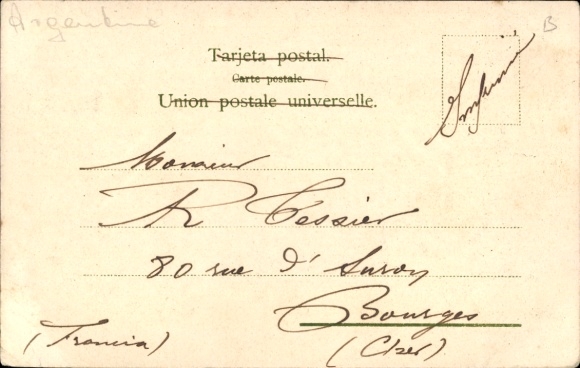 Argentine
B
Tarjeta postal.
Carte postale.
Union postale universelle.
Imprimé
Monsieur
R Tessier
80 rue d'Auron
Bourges
(Francia) (Cher)